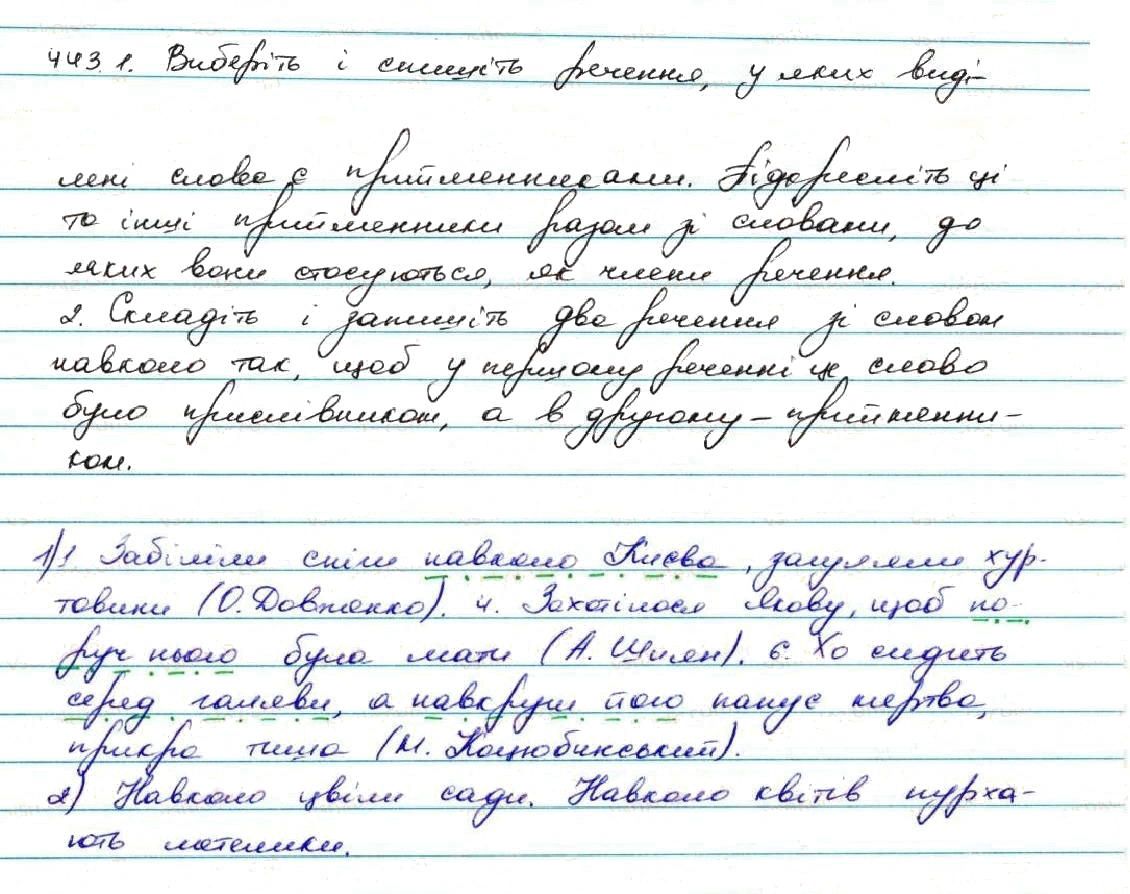 443. 1. Виберіть і спишіть речення, у яких виді-
лені слова є прийменниками. Підкресліть ці
та інші прийменники разом зі словами, до
яких вони стосуються, як члени речення.
2. Складіть і запишіть два речення зі словом
навколо так, щоб у першому реченні це слово
було прислівником, а в другому – прийменни-
ком.
1) 1. Забіліли сніги навколо Києва, загуляли хур-
товини (О. Довженко). 4. Захотілося Якову, щоб по-
руч нього була мати (А. Шиян). 6. Хо сидить
серед галяви, а навкруги його панує мертва,
прикра тиша (М. Коцюбинський).
2) Навколо цвіли сади. Навколо квітів пурха-
ють метелики.